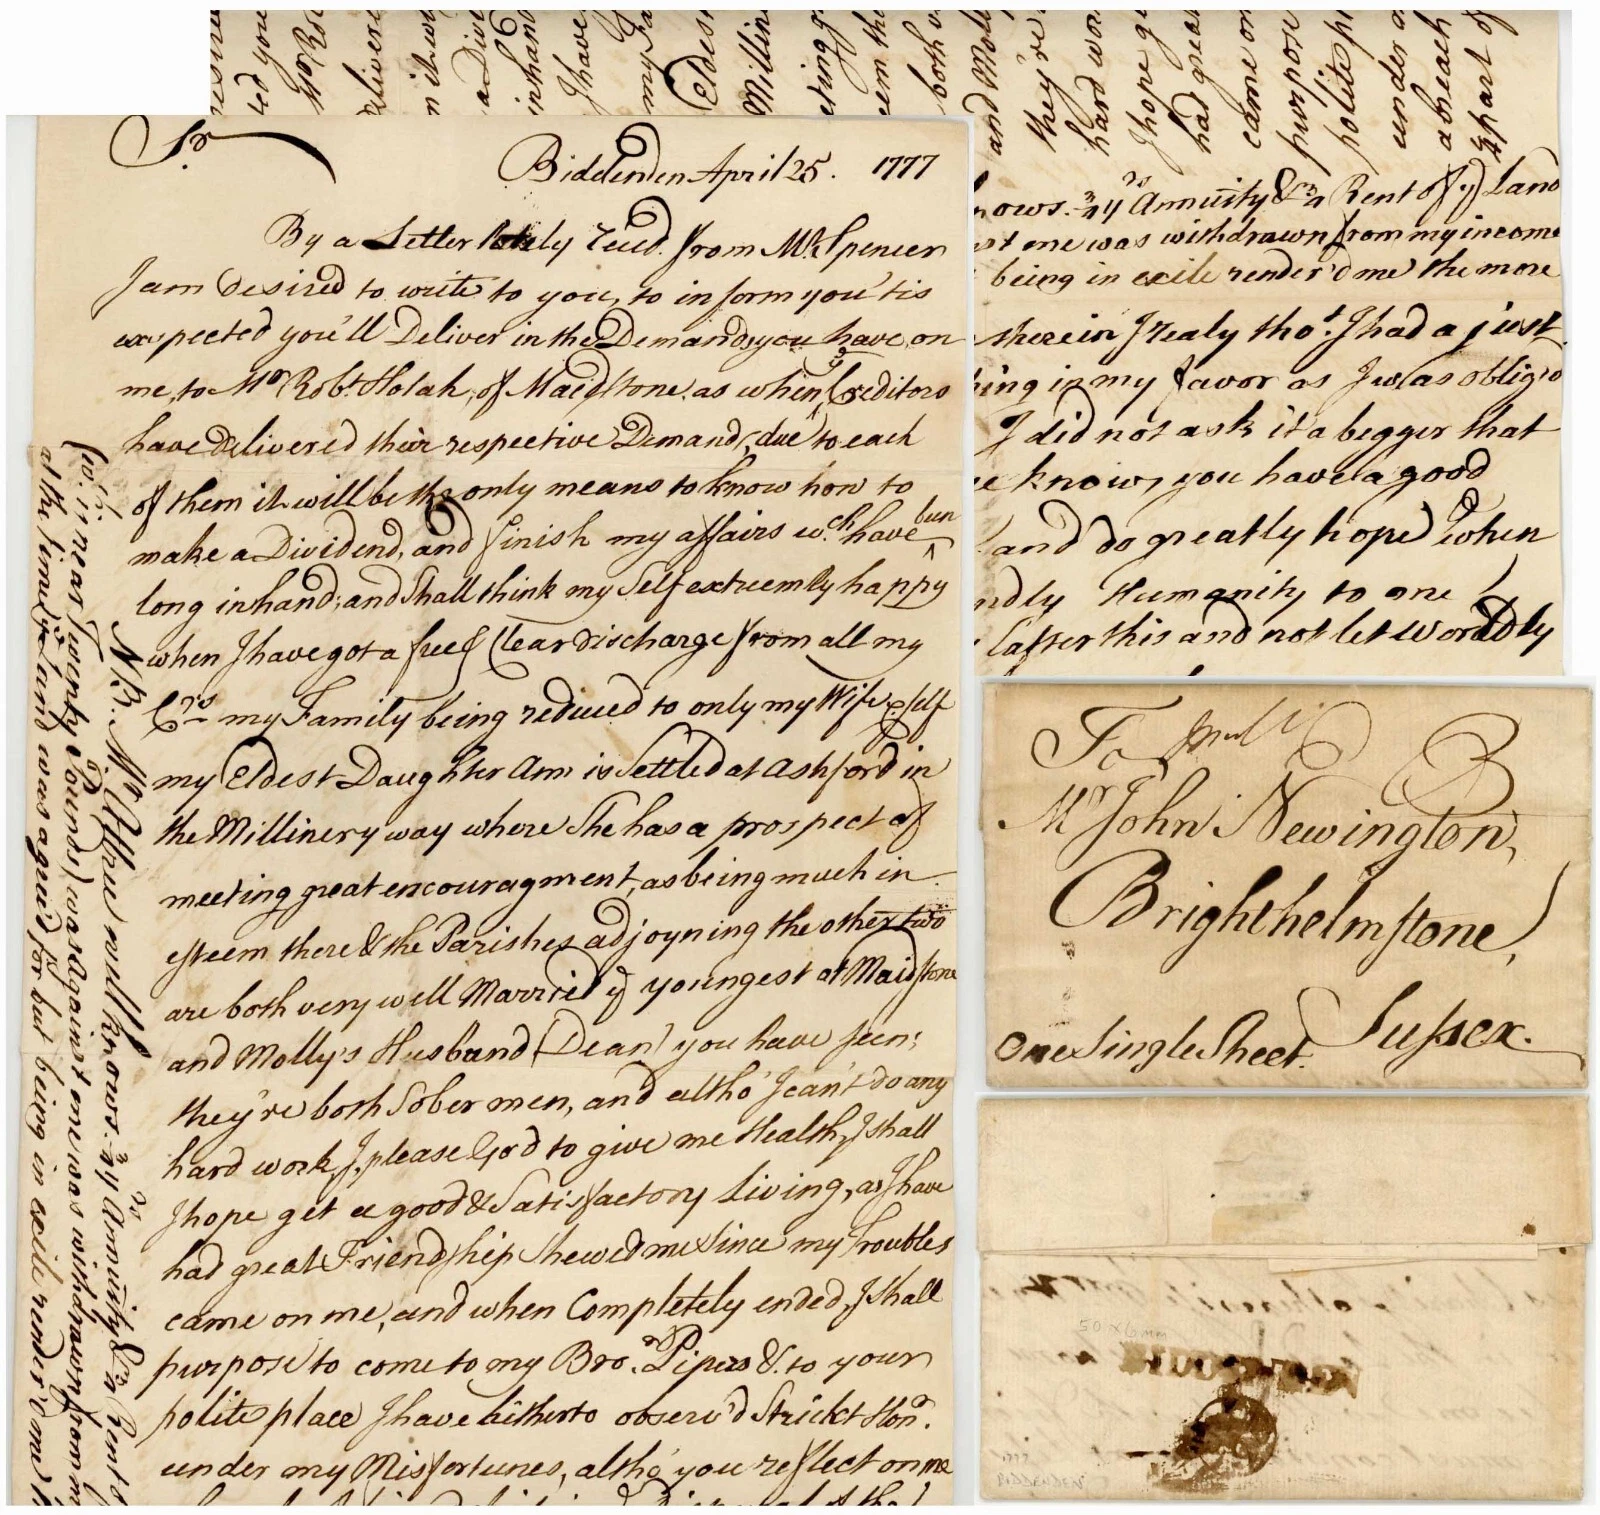 Sr.
Biddenden April 25. 1777
By a Letter lately recd. from Mr. Spencer
I am Desired to write to you, to inform you 'tis
expected you'll Deliver in the Demands you have on
me, to Mr Robt. Holah, of Maidstone. as when ye Creditors
have Delivered their respective Demands, due to each
of them it will be the only means to know how to
make a Dividend, and finish my affairs wch. have been
long in hand; and Shall think my Self extreemly happy
when I have got a free & Clear discharge from all my
Crs. my Family being reduced to only my Wife & self
my Eldest Daughter Ann is Settled at Ashford in
the Millinery way where She has a prospect of
meeting great encouragment, as being much in
esteem there & the Parishes adjoyning the other two
are both very well Married ye youngest at Maidstone
and Molly's Husband (Dean) you have seen;
they're both Sober men, and altho' I can't do any
hard work, if please God to give me Health, I shall
I hope get a good & Satisfactory Living, as I have
had great Friendship Shewed me Since my Troubles
came on me, and when Completely ended, I shall
purpose to come to my Bro. Pipers & to your
polite place I have hitherto observ'd Strickt Honr.
under my Misfortunes, altho' you reflect on me
N.B. Mr. Attree well knows. ye Annuity & ye Rent o
(wch. is near Twenty Pounds) was against one was withdrawn from m
at the time ye Land was agreed for but being in exile render'd me t
ted you
delivere
a Divi
in hand
I have
my Fa
Eldest
Milline
eting g
eem the
both v
and Moll
they're
hard wor
I hope g
had great
came on
purpose
polite p
under
a breach
part of
nows. ye Annuity & ye Rent of ye Land
st one was withdrawn from my income
being in exile render'd me the more
therein I realy thot. I had a just
hing in my favor as I was oblig'd
I did not ask it a begger that
e know, you have a good
and do greatly hope when
ndly Humanity to one
after this and not let wordly
To
Mr John Newington,
Brighthelmstone,
Sussex.
One Single Sheet.
50 x 6 mm